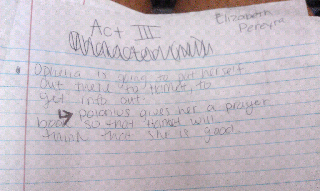 Elizabeth
Pereyra
Act III
Ophelia is going to put herself
out there to Hamlet, to
get info out.
Polonius gives her a prayer
book so that Hamlet will
think that she is good.